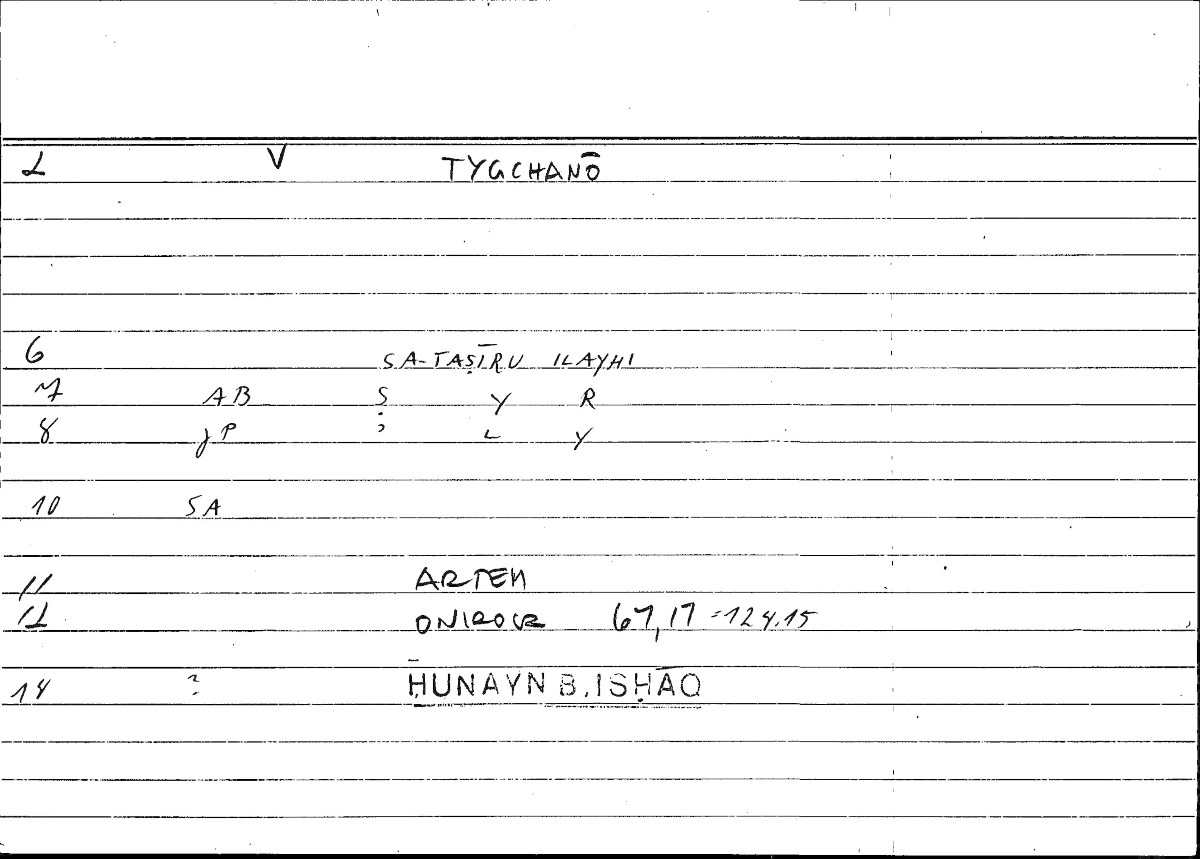 2 V TYGCHANŌ
6 SA-TAṢĪRU ILAYHI
7 AB Ṣ Y R
8 JP ʾ L Y
10 SA
11 ARTEM
12 ONIROCR 67,17 = 124.15
14 ? ḤUNAYN B. ISḤĀQ